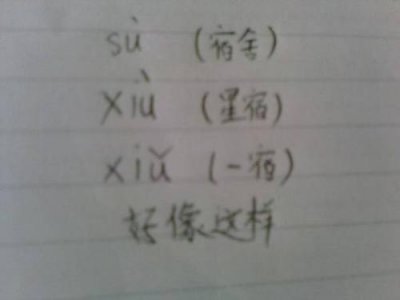 sù (宿舍)
xiù (星宿)
xiǔ (一宿)
好像这样